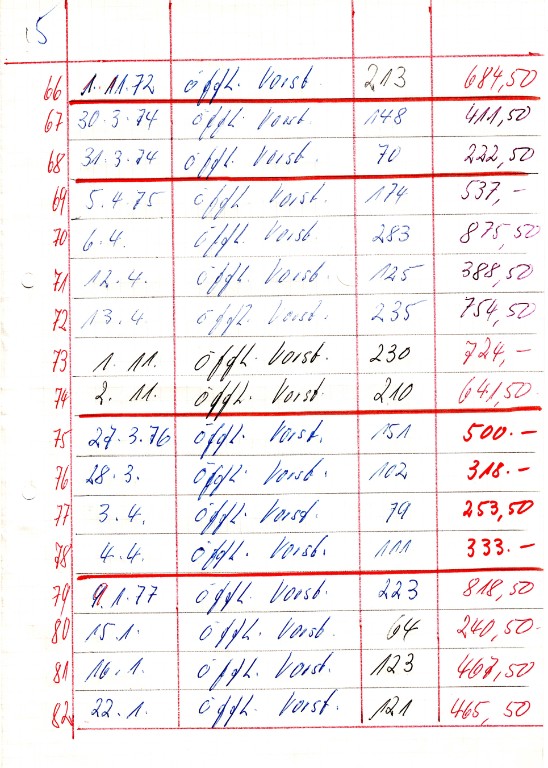 5
66 1.11.72 öfftl. Vorst. 213 684,50
67 30.3.74 öfftl. Vorst. 148 411,50
68 31.3.74 öfftl. Vorst. 70 222,50
69 5.4.75 öfftl. Vorst. 174 537,-
70 6.4. öfftl. Vorst. 283 875,50
71 12.4. öfftl. Vorst. 125 388,50
72 13.4. öfftl. Vorst. 235 754,50
73 1.11. öfftl. Vorst. 230 724,-
74 2.11. öfftl. Vorst. 210 641,50
75 27.3.76 öfftl. Vorst. 151 500.-
76 28.3. öfftl. Vorst. 102 318.-
77 3.4. öfftl. Vorst. 79 253,50
78 4.4. öfftl. Vorst. 111 333.-
79 9.1.77 öfftl. Vorst. 223 818,50
80 15.1. öfftl. Vorst. 64 240,50
81 16.1. öfftl. Vorst. 123 467,50
82 22.1. öfftl. Vorst. 121 465,50